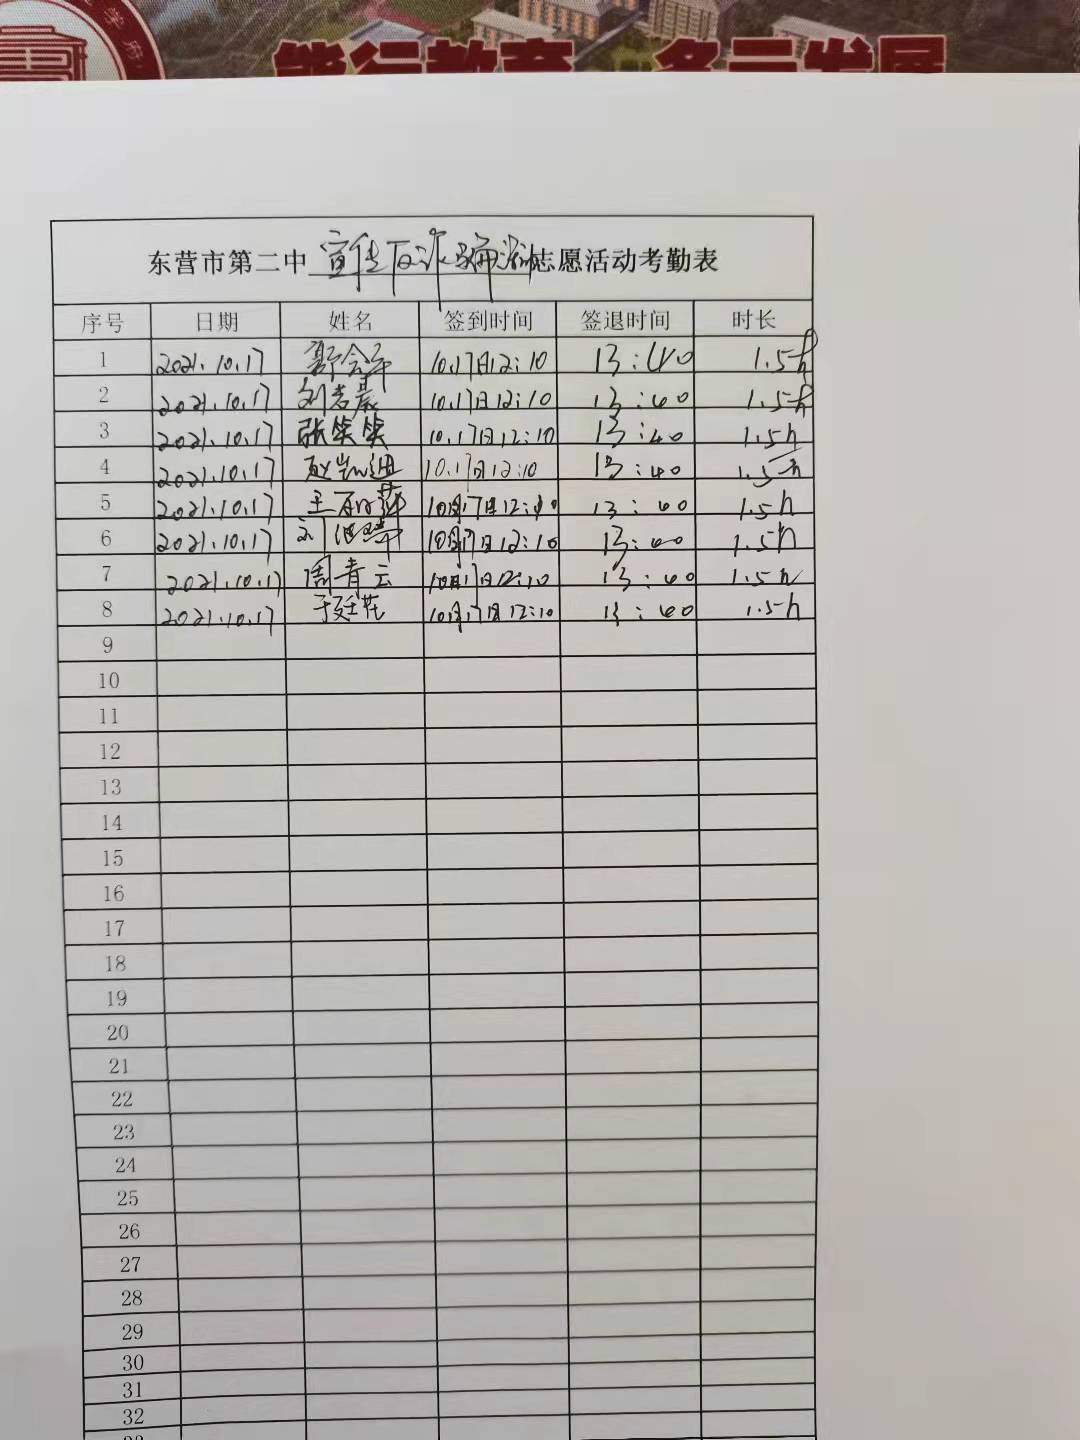 能行教育 多元发展
东营市第二中宣传反诈骗活动志愿活动考勤表
序号 日期 姓名 签到时间 签退时间 时长
1 2021.10.17 10.17日12:10 13:40 1.5h
2 2021.10.17 刘若晨 10.17日12:10 13:40 1.5h
3 2021.10.17 张笑笑 10.17日12:10 13:40 1.5h
4 2021.10.17 10.17日12:10 13:40 1.5h
5 2021.10.17 10月17日12:10 13:40 1.5h
6 2021.10.17 10月17日12:10 13:40 1.5h
7 2021.10.17 周青云 10月17日12:10 13:40 1.5h
8 2021.10.17 10月17日12:10 13:40 1.5h
9
10
11
12
13
14
15
16
17
18
19
20
21
22
23
24
25
26
27
28
29
30
31
32